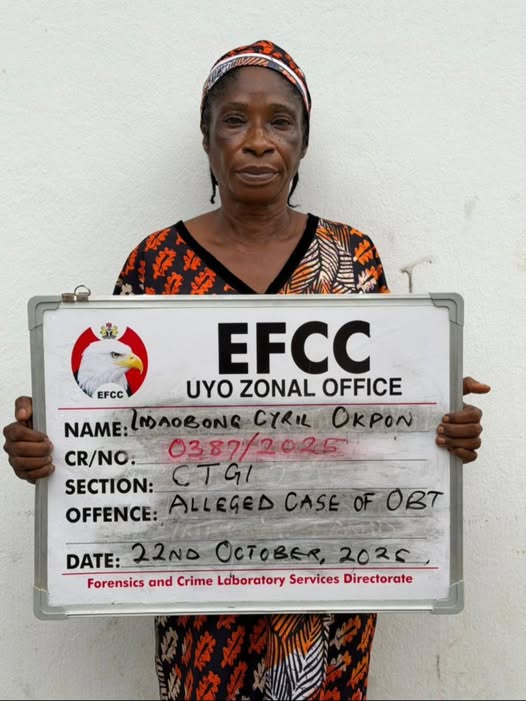 EFCC
EFCC
UYO ZONAL OFFICE
NAME: IMAOBONG CYRIL OKPON
CR/NO. 0387/2025
SECTION: CTGI
OFFENCE: ALLEGED CASE OF OBT
DATE: 22ND OCTOBER, 2025.
Forensics and Crime Laboratory Services Directorate